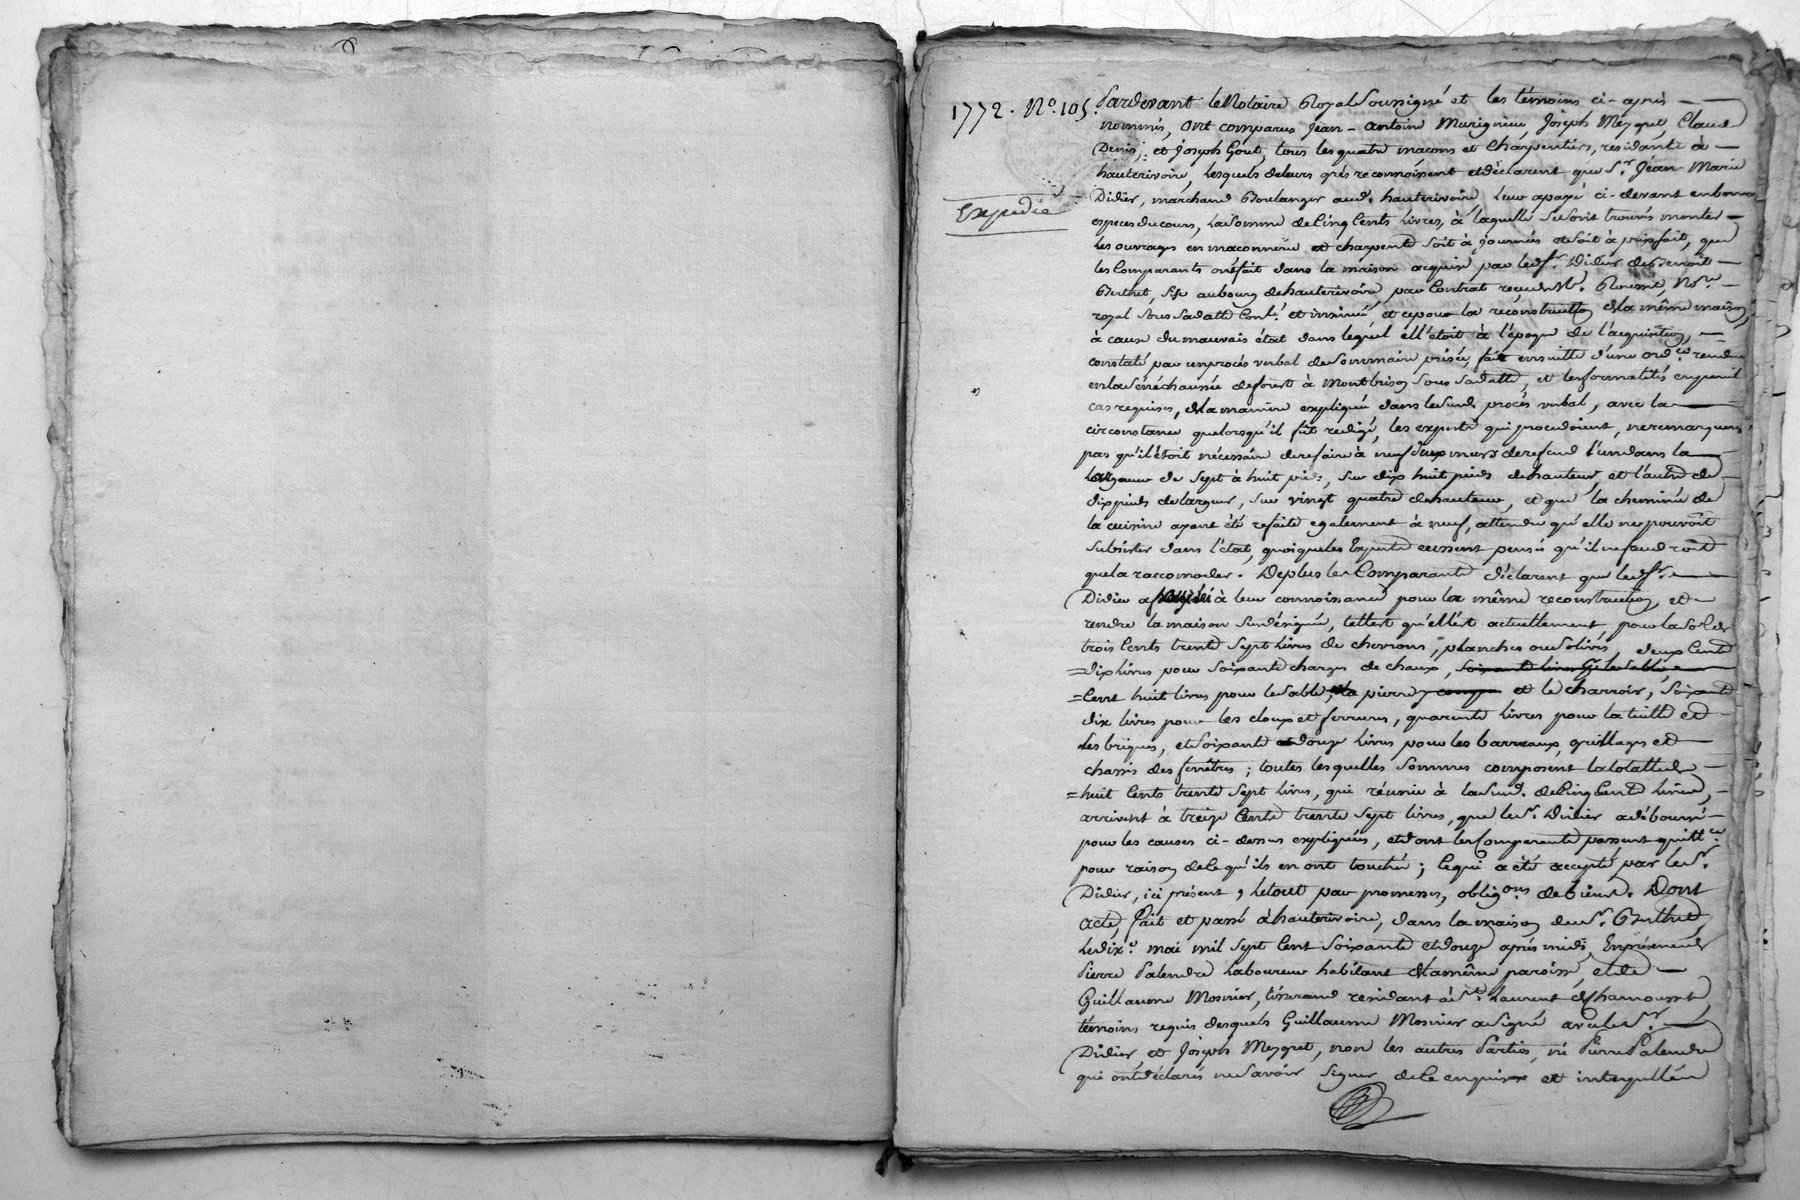 1772. N.º 105. Pardevant le Notaire Royal Soussigné et les témoins ci-après
nommés, ont comparus Jean-Antoine Murigneux, Joseph Meygret, Claude
Denis, et Joseph Gout, tous les quatre macons et Charpentiers, residants à
hauterivoire, lesquels de leurs grés reconnoissent et déclarent que S.r Jean-Marie
Expedié
Didier, marchand Boulanger aud. hauterivoire leur a payé ci-devant en bonnes
especes du cours, la somme de Cinq Cents livres, à laquelle se sont trouvés monter
les ouvrages en maconnerie et charpente soit à journées et soit à prixfait, que
les Comparants ont fait dans la maison acquise par led. S.r Didier de Benoit
Berthet, sise au bourg de hauterivoire par Contrat reçu de M.e Rousset, No.re
royal sous sa datte Con.lé et insinué et ce pour la reconstruction de la même maison,
à cause du mauvais état dans lequel ell'étoit à l'époque de l'acquisition,
constaté par un procès verbal de sommaire prisée, fait ensuitte d'une ord.ce rendue
en la sénéchaussée de forest à Montbrison sous sa datte, et les formalités en pareil
cas requises, de la maniere expliquée dans le susd. procés verbal, avec la
circonstance que lorsqu'il fût redigé, les experts qui procedoient, ne remarquerent
pas qu'il étoit nécessaire de refaire à neuf deux murs de refend l'un dans la
largeur de sept à huit pieds, sur dix huit pieds de hauteur, et l'autre de
dix pieds de largeur, sur vingt quatre de hauteur, et que la cheminée de
la cuisine ayant été refaite egalement à neuf, attendu qu'elle ne pouvoit
subsister dans l'état, quoique les Experts eussent pensés qu'il ne faudroit
que la raccomoder. De plus les Comparants déclarent que led. S.r
Didier a à leur connoissance pour la même reconstruction, et
rendre la maison susdésignée, tell'est qu'ell'est actuellement, pour la so.e de
trois Cents trente sept livres de chevrons, planches ou solives, deux Cents
=dix livres pour soixante charges de chaux,
=Cent huit livres pour le sable, la pierre et le charroir, soixante
dix livres pour les cloux et ferrures, quarente livres pour la tuille et
les briques, et soixante douze livres pour les barreaux, grillages et
chassis des fenêtres; toutes lesquelles sommes composent la totallité de
=huit Cents trente sept livres, qui réunie à la susd. de Cinq Cents livres,
arrivent à treize Cents trente sept livres, que le S.r Didier a débourré
pour les causes ci-dessus expliquées, et dont les Comparants passent quitt.ce
pour raison de ce qu'ils en ont touché; ce qui a été accepté par le S.r
Didier, ici présent, le tout par promesses, oblig.ons de biens. Dont
acte, fait et passé à hauterivoire, dans la maison du S.r Berthet,
le dix.e mai mil sept Cent soixante et douze après midi, En présence de
Pierre Palendre Laboureur habitant de la même paroisse, et de
Guillaume Mosnier, tisserand residant à S.t Laurent de Chamousset,
témoins requis desquels Guillaume Mosnier a signé avec le S.r
Didier, et Joseph Meygret, non les autres Parties, ni Pierre Palendre
qui ont déclarés ne savoir signer de ce enquis et interpellés